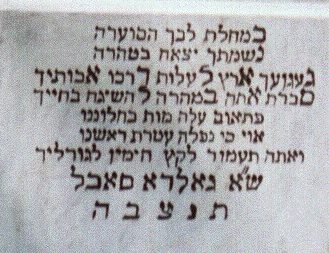 במחלת לבך הבוערה
נשמתך יצאה בטהרה
געגועך ארץ לעלות דרכו אבותיך
סברת אתה במהרה להשיגה בחייך
פתאום עלה מות בחלוננו
אוי כי נפלה עטרת ראשנו
ואתה תעמוד לקץ הימין לגורליך
ש"א גאלדא סאבל
ת נ צ ב ה